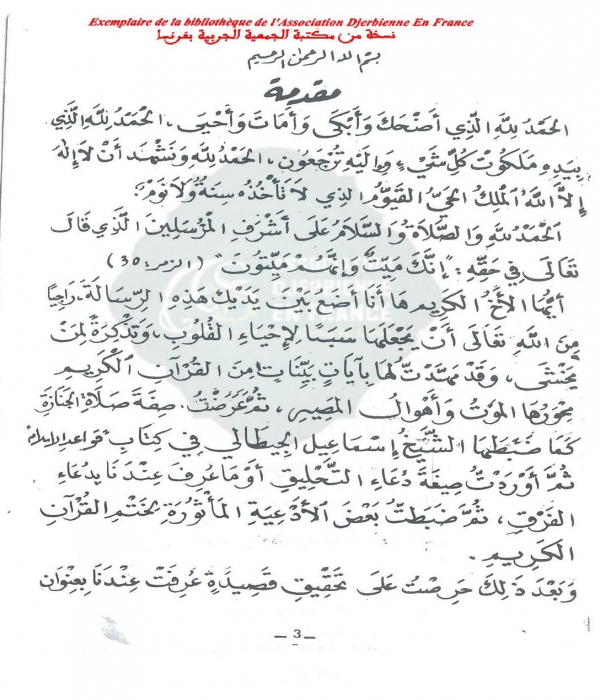 Exemplaire de la bibliothèque de l'Association Djerbienne En France
نسخة من مكتبة الجمعية الجربية بفرنسا
بسم الله الرحمن الرحيم
مقدمة
الحَمْدُ لِلَّهِ الَّذِي أَضْحَكَ وَأَبْكَى وَأَمَاتَ وَأَحْيَى ، الحَمْدُ لِلَّهِ الَّذِي
بِيَدِهِ مَلَكُوتُ كُلِّ شَيْءٍ وَإِلَيْهِ تُرْجَعُون ، الحَمْدُ لِلَّهِ وَنَشْهَدُ أَنْ لَا إِلَهَ
إِلَّا اللَّهُ المَلِكُ الحَيُّ القَيُّومُ الذي لَا تَأْخُذُهُ سِنَةٌ وَلَا نَوْمٌ .
الحَمْدُ لِلَّهِ وَالصَّلَاةُ وَالسَّلَامُ عَلَى أَشْرَفِ المُرْسَلِينَ الَّذِي قَالَ
تَعَالَى فِي حَقِّهِ : "إِنَّكَ مَيِّتٌ وَإِنَّهُم مَيِّتُونَ" (الزمر: 30)
أَيُّهَا الأَخُ الكَرِيم هَا أَنَا أَضَعُ بَيْنَ يَدَيْكَ هَذِهِ الرِّسَالَةَ، رَاجِيًا
مِنَ اللَّهِ تَعَالَى أَنْ يَجْعَلَهَا سَبَبًا لِإِحْيَاءِ القُلُوبِ ، وَتَذْكِرَةً لِمَنْ
يَخْشَى ، وَقَدْ مَهَّدْتُ لَهَا بِآيَاتٍ بَيِّنَاتٍ مِنَ القُرْآنِ الكَرِيمِ
مِحْوَرُهَا المَوْتُ وَأَهْوَالُ المَصِيرِ ، ثُمَّ عَرَضْتُ صِفَةَ صَلَاةِ الجَنَازَةِ
كَمَا ضَبَطَهَا الشَّيْخُ إِسْمَاعِيل الجِيطَالِي فِي كِتَابِ قَوَاعِد الإسلام
ثُمَّ أَوْرَدْتُ صِيغَةَ دُعَاءِ التَّحْلِيقِ أَوْ مَا عُرِفَ عِنْدَنَا بِدُعَاءِ
الفَرْقِ ، ثُمَّ ضَبَطتُ بَعْضَ الأَدْعِيَةِ المَأْثُورَةِ لِخَتْمِ القُرْآنِ
الكَرِيمِ .
وَبَعْدَ ذَلِكَ حَرِصْتُ عَلَى تَحْقِيقِ قَصِيدَةٍ عُرِفَتْ عِنْدَنَا بِعِنْوَانِ
— 3 —
DJERBIENNE
EN FRANCE